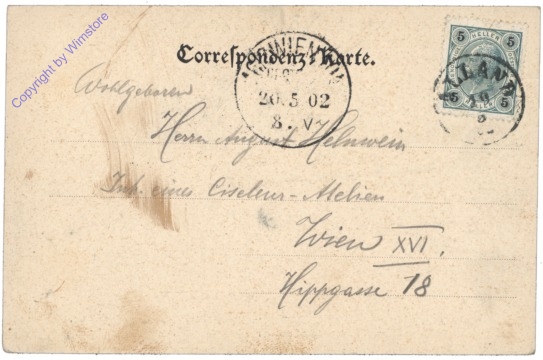 Copyright by Wimstore
Correspondenz-Karte.
WIEN
20.5.02
8.V
5 HELLER 5
5 5
Wohlgeboren
Herrn August Helnwein
Inh. eines Ciseleur-Atelier
Wien XVI.
Hippgasse 18